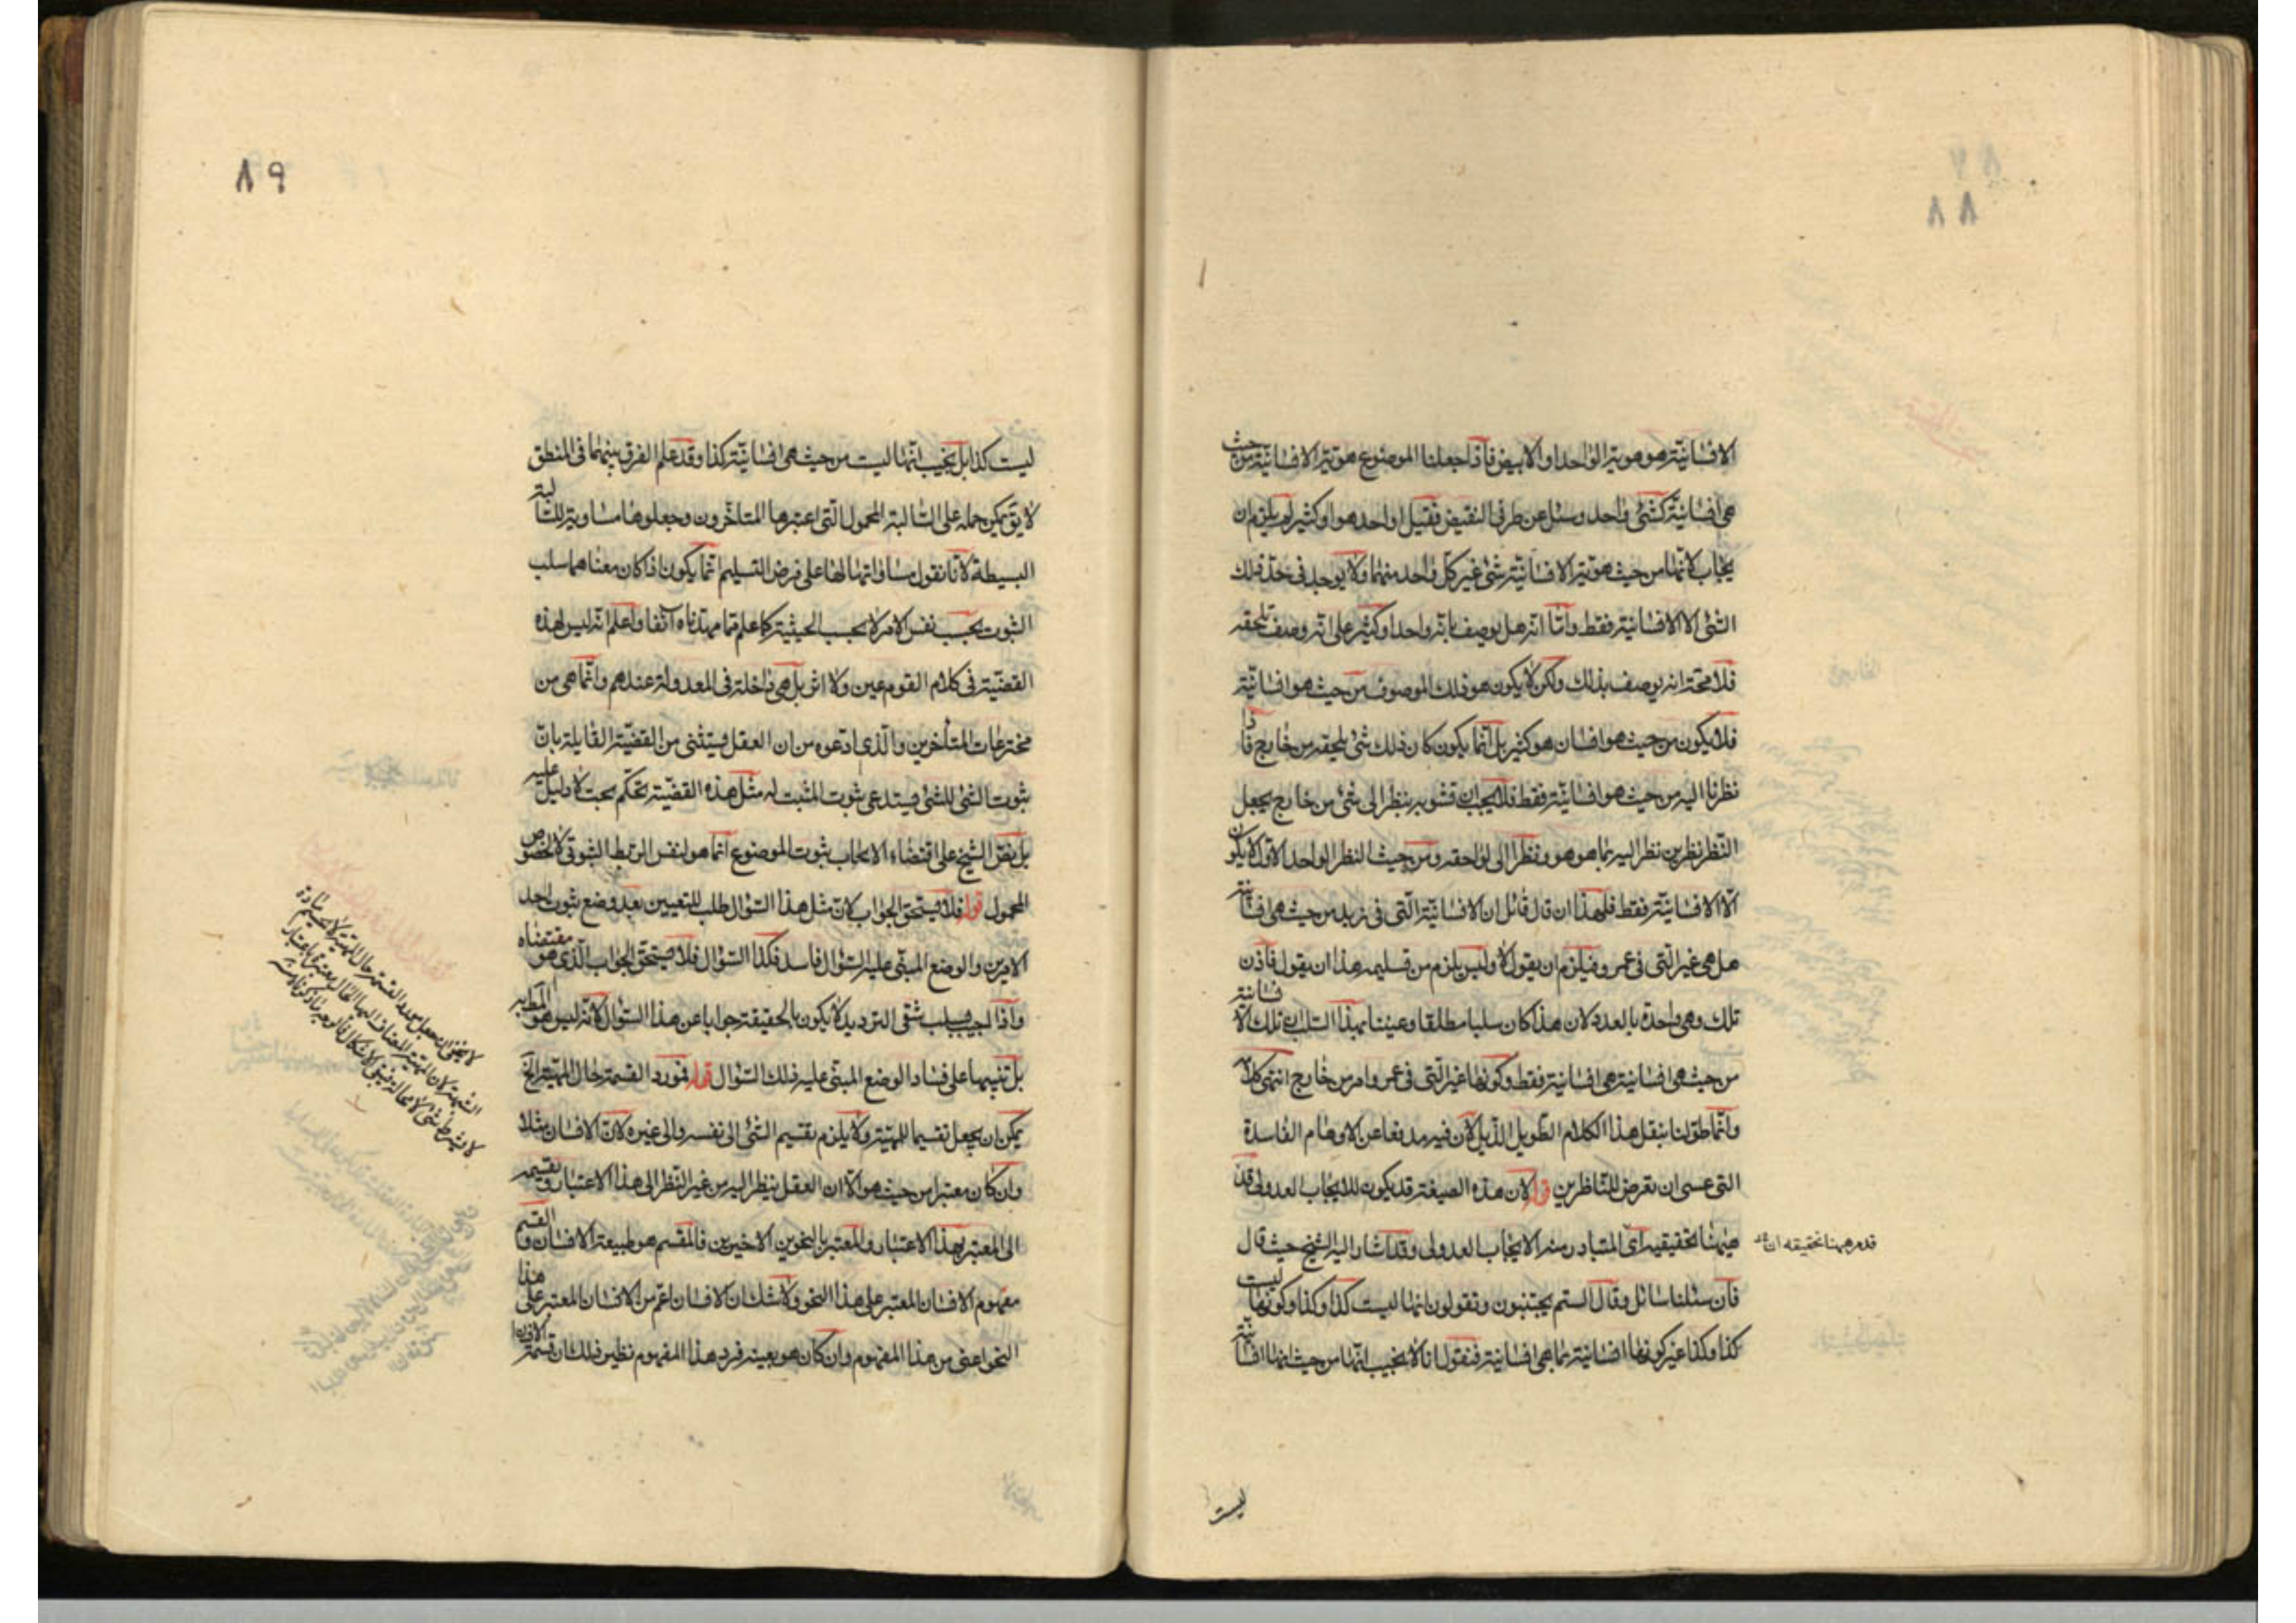 ٨٨
الانسانية هو هوية الواحد او الابيض فاذا جعلنا الموضوع هوية الانسانية من حيث
هي انسانية كشئ واحد وسئل عن طرفي النقيض فقيل اواحد هو او كثير لم يلزم ان
يجاب لانها من حيث هوية الانسانية شئ غير كل واحد منهما ولا يوجد في حد ذلك
الشئ الا الانسانية فقط واما انه هل يوصف بانه واحد او كثير على انه وصف يلحقه
فلا محة انه يوصف بذلك ولكن لا يكون هو ذلك الموصوف من حيث هو انسانية
فلا يكون من حيث هو انسان هو كثير بل انما يكون كان ذلك شئ يلحقه من خارج فاذا
نظرنا اليه من حيث هو انسانية فقط فلا يجب ان نشوبه بنظر الى شئ من خارج يجعل
النظر نظرين نظر اليه بما هو هو ونظر الى لواحقه ومن حيث النظر الواحد الاول لا يكون
الا الانسانية فقط فلهذا ان قال قائل ان الانسانية التي في زيد من حيث هي انسانية
هل هي غير التي في عمرو فيلزم ان يقول لا وليس يلزم من تسليمه هذا ان يقول فاذن
تلك وهي واحدة بالعدد لان هذا كان سلبا مطلقا وعنينا بهذا السلب ان تلك الانسانية
من حيث هي انسانية هي انسانية فقط وكونها غير التي في عمرو امر من خارج انتهى كلامه
وانما طولنا بنقل هذا الكلام الطويل الذيل لان فيه مدفعا عن الاوهام الفاسدة
التي عسى ان تعرض للناظرين قوله لان هذه الصيغة قد يكون للايجاب العدولي قد
ههنا تحقيقه اى المتبادر منه الايجاب العدولي وقد اشار اليه الشيخ حيث قال
فان سئلنا سائل وقال الستم يجيبون وتقولون انها ليست كذا وكذا وكونها ليست
كذا وكذا غير كونها انسانية بما هي انسانية فنقول انا لا نجيب انها من حيث انها انسانية
قد مر ههنا تحقيقه ان
ليست
٨٩
ليست كذا بل نجيب انها ليست من حيث هي انسانية كذا وقد علم الفرق بينهما في المنطق
لا يق يمكن حمله على السالبة المحمول التي اعتبرها المتاخرون وجعلوها مساوية للسالبة
البسيطة لانا نقول مساواتها لها على فرض التسليم انما يكون اذا كان معناهما سلب
الثبوت بحسب نفس الامر لا بحسب الحيثية كما علم مما مهدناه آنفا واعلم انه ليس لهذه
القضية في كلام القوم عين ولا اثر بل هي داخلة في المعدولة عندهم وانما هي من
مخترعات المتأخرين والذي ادعوه من ان العقل يستثنى من القضية القايلة بان
ثبوت الشئ للشئ يستدعي ثبوت المثبت له مثل هذه القضية تحكم بحت لا دليل عليه
بل نص الشيخ على اقتضاء الايجاب ثبوت الموضوع انما هو لنفس الربط الثبوتي لا لخصوص
المحمول قوله فلا يستحق الجواب لان مثل هذا السؤال طلب للتعيين بعد وضع ثبوت احد
الامرين والوضع المبني عليه السؤال فاسد فكذا السؤال فلا يستحق الجواب الذي هو مقتضاه
واذا اجيب بسلب شقي الترديد لا يكون بالحقيقة جوابا عن هذا السؤال لانه ليس هو المط به
بل تنبيها على فساد الوضع المبني عليه ذلك السؤال قوله فمورد القسمة لحال المهية الخ
يمكن ان يجعل تقسيما للمهية ولا يلزم تقسيم الشئ الى نفسه والى غيره لان الانسان مثلا
وان كان معتبرا من حيث هو الا ان العقل ينظر اليه من غير النظر الى هذا الاعتبار وتقسيمه
الى المعتبر بهذا الاعتبار والمعتبر بالنحوين الاخيرين فالمقسم هو طبيعة الانسان والقسم
مفهوم الانسان المعتبر على هذا النحو ولا شك ان الانسان اعم من الانسان المعتبر على هذا
النحو اعني من هذا المفهوم وان كان هو بعينه فرد هذا المفهوم نظير ذلك ان قسمة الانسان